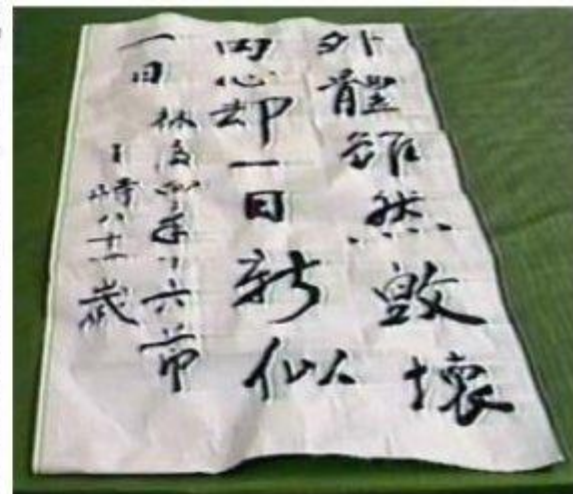 外體雖然毀壞
內心却一日新似
一日
林后四章十六節
時八十歲